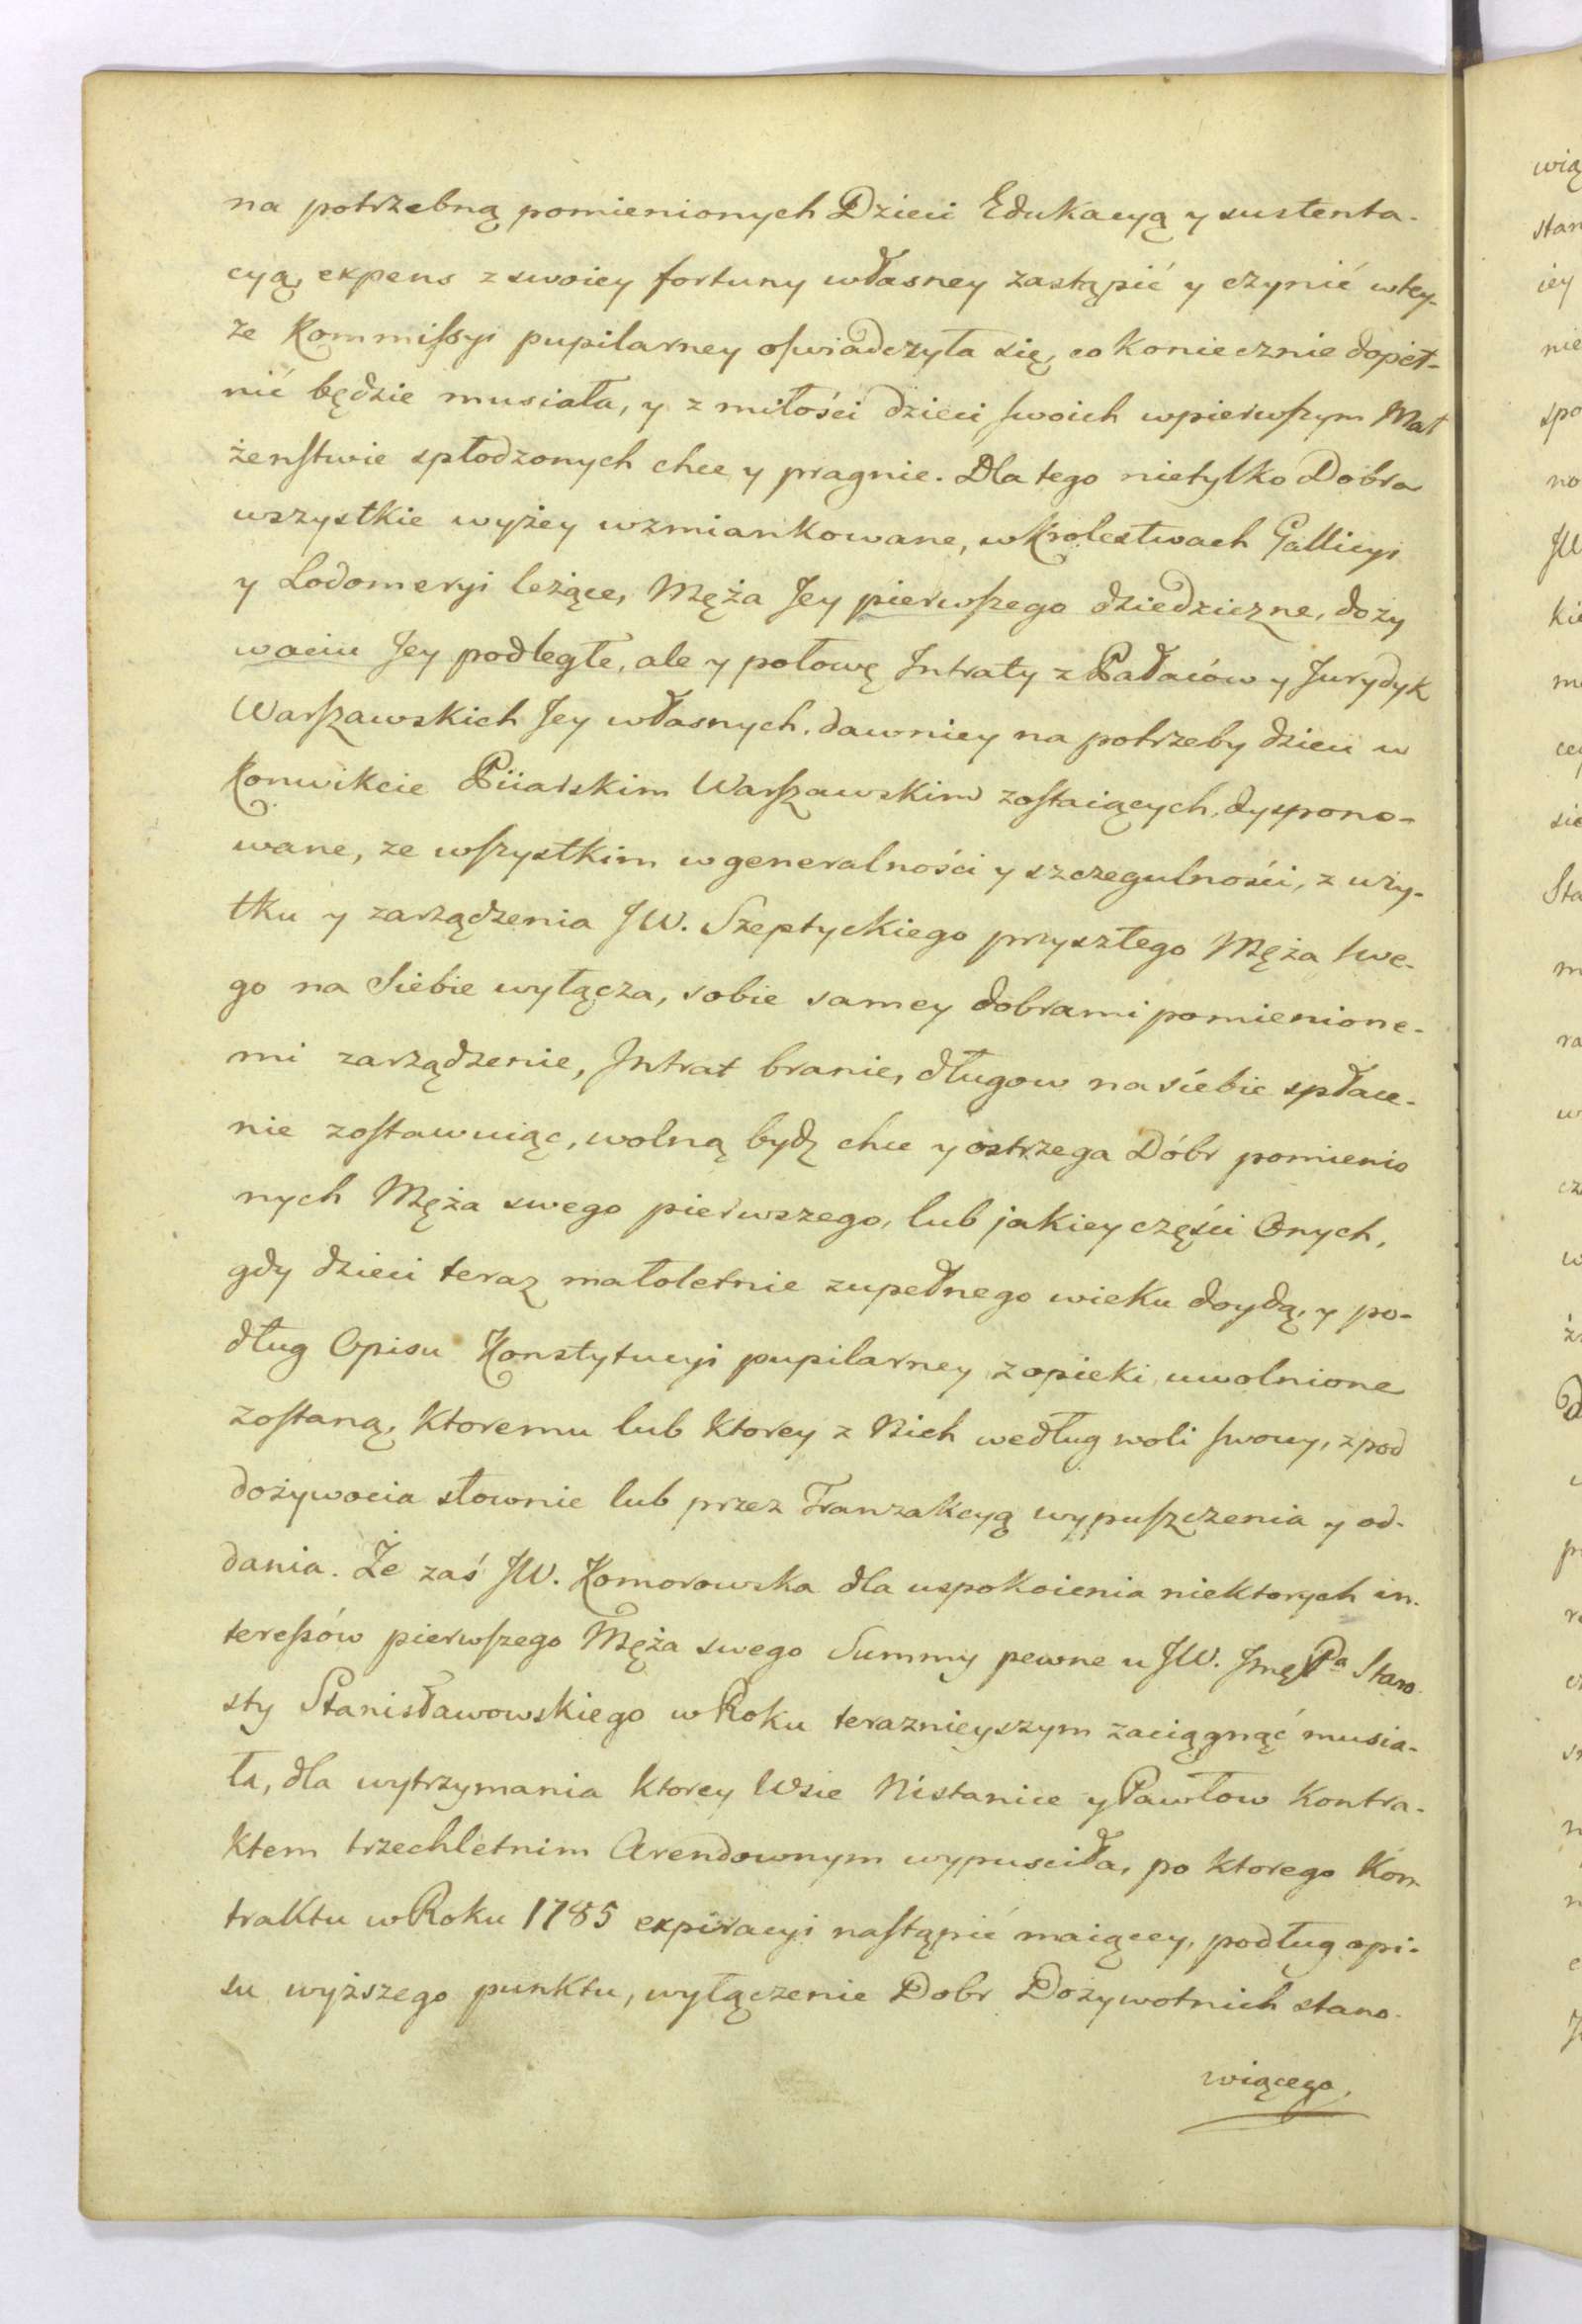 na potrzebną pomienionych Dzieci Edukacyą y sustenta-
cyą, expens z swoiey fortuny własney zastąpić y czynić wtey-
ze Kommiſsyi pupilarney oſwiadczyła się, co koniecznie dopeł-
nić będzie musiała, y z miłości dzieci ſwoich wpierwſzym Mał
żenſtwie spłodzonych chce y pragnie. Dla tego nietylko Dobra
wszystkie wyżey wzmiankowane, w Krolestwach Gallicyi
y Lodomeryi leżące, Męża Jey pierwſzego dziedziczne, doży
waciu Jey podległe, ale y połowę Intraty z Pałaców y Jurydyk
Warſzawskich Jey własnych, dawniey na potrzeby dzieci w
Konwikcie Piiarskim Warſzawskim zoſtaiących, dyspono-
wane, ze wſzystkim w generalności y szczegulności, z uży-
tku y zarządzenia JW. Szeptyckiego przyszłego Męża ſwe-
go na Siebie wyłącza, sobie samey dobrami pomienione-
mi zarządzenie, Intrat branie, długow na siebie spłace-
nie zoſtawuiąc, wolną bydź chce y ostrzega Dóbr pomienio
nych Męża swego pierwszego, lub jakiey części Onych,
gdy dzieci teraz małoletnie zupełnego wieku doydą, y po-
dług Opisu Konstytucyi pupilarney z opieki uwolnione
zoſtaną, Ktoremu lub Ktorey z Nich według woli ſwoiey, z pod
dożywocia słownie lub przez Tranzakcyą wypuſzczenia y od-
dania. Że zaś JW. Komorowska dla uspokoienia niektorych in-
tereſsów pierwſzego Męża swego Summy pewne u JW. Jmę Pa Staro-
sty Stanisławowskiego w Roku teraznieyszym zaciągnąć musia-
ła, dla wytrzymania Ktorey Wsie Nistanice y Pawłow Kontra-
Ktem trzechletnim Arendownym wypusciła, po Ktorego Kon-
traktu w Roku 1785 expiracyi naſtąpić maiącey, podług opi-
su wyższego punktu, wyłączenie Dobr Dożywotnich stano-
wiącego,